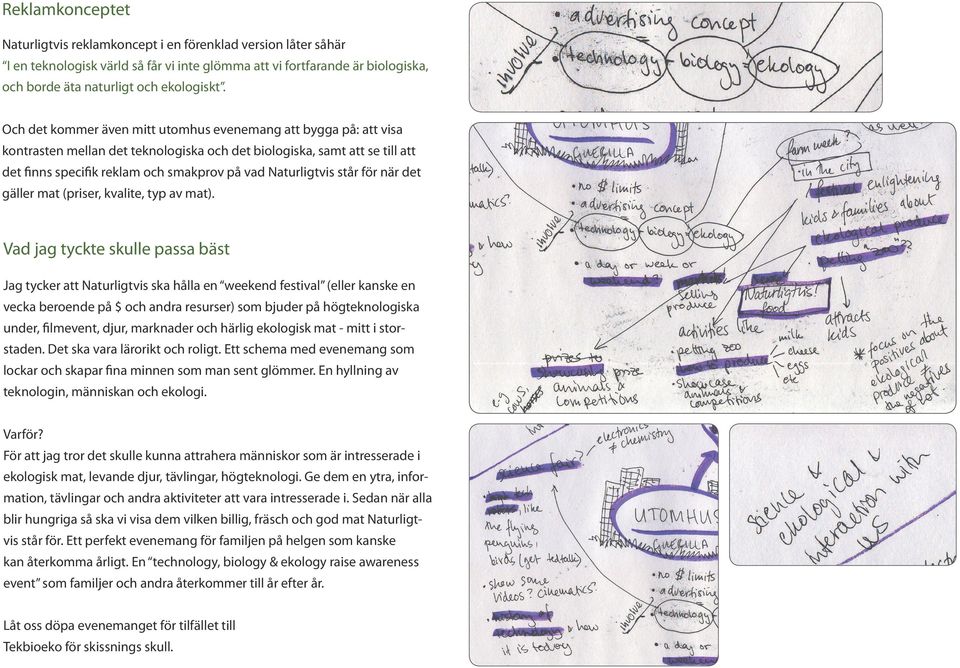 Reklamkonceptet
Naturligtvis reklamkoncept i en förenklad version låter såhär
“I en teknologisk värld så får vi inte glömma att vi fortfarande är biologiska,
och borde äta naturligt och ekologiskt”.
Och det kommer även mitt utomhus evenemang att bygga på: att visa
kontrasten mellan det teknologiska och det biologiska, samt att se till att
det finns specifik reklam och smakprov på vad Naturligtvis står för när det
gäller mat (priser, kvalite, typ av mat).
Vad jag tyckte skulle passa bäst
Jag tycker att Naturligtvis ska hålla en “weekend festival” (eller kanske en
vecka beroende på $ och andra resurser) som bjuder på högteknologiska
under, filmevent, djur, marknader och härlig ekologisk mat - mitt i stor-
staden. Det ska vara lärorikt och roligt. Ett schema med evenemang som
lockar och skapar fina minnen som man sent glömmer. En hyllning av
teknologin, människan och ekologi.
Varför?
För att jag tror det skulle kunna attrahera människor som är intresserade i
ekologisk mat, levande djur, tävlingar, högteknologi. Ge dem en ytra, infor-
mation, tävlingar och andra aktiviteter att vara intresserade i. Sedan när alla
blir hungriga så ska vi visa dem vilken billig, fräsch och god mat Naturligt-
vis står för. Ett perfekt evenemang för familjen på helgen som kanske
kan återkomma årligt. En “technology, biology & ekology raise awareness
event” som familjer och andra återkommer till år efter år.
Låt oss döpa evenemanget för tilfället till
Tekbioeko för skissnings skull.
• advertising concept
involve
technology - biology - ekology
UTOMHUS
GUERILLA
talk)
matics?
& how
• no $ limits
• advertising concept
involve
• technology - biology - ekology
• a day or week or
weekend?
as well
farm week?
• in the city
festival enlightening
kids & families about
ekological produce
petting "zoo"?
selling
produce
Naturligtvis!
food
attracts
kids
activities like
• petting zoo
how to produce
milk
cheese
eggs
etc
• showcase
animals &
competitions
prizes to
showcasing prize
animals &
competitions
e.g
cows,
horses
* focus on the
positives about
ekological
produce to
the negatives
of not
electronics
≠ chemistry
science fair?
like
the flying
penguins!
birds (get tedtalk)
• show some
videos? cinematics?
• history of
technology & how
it is today
UTOMHUS
GUERILLA
• no $ limits
• advertising
involve
• technology
• a day or
weekend
science &
ekological &
interaction with